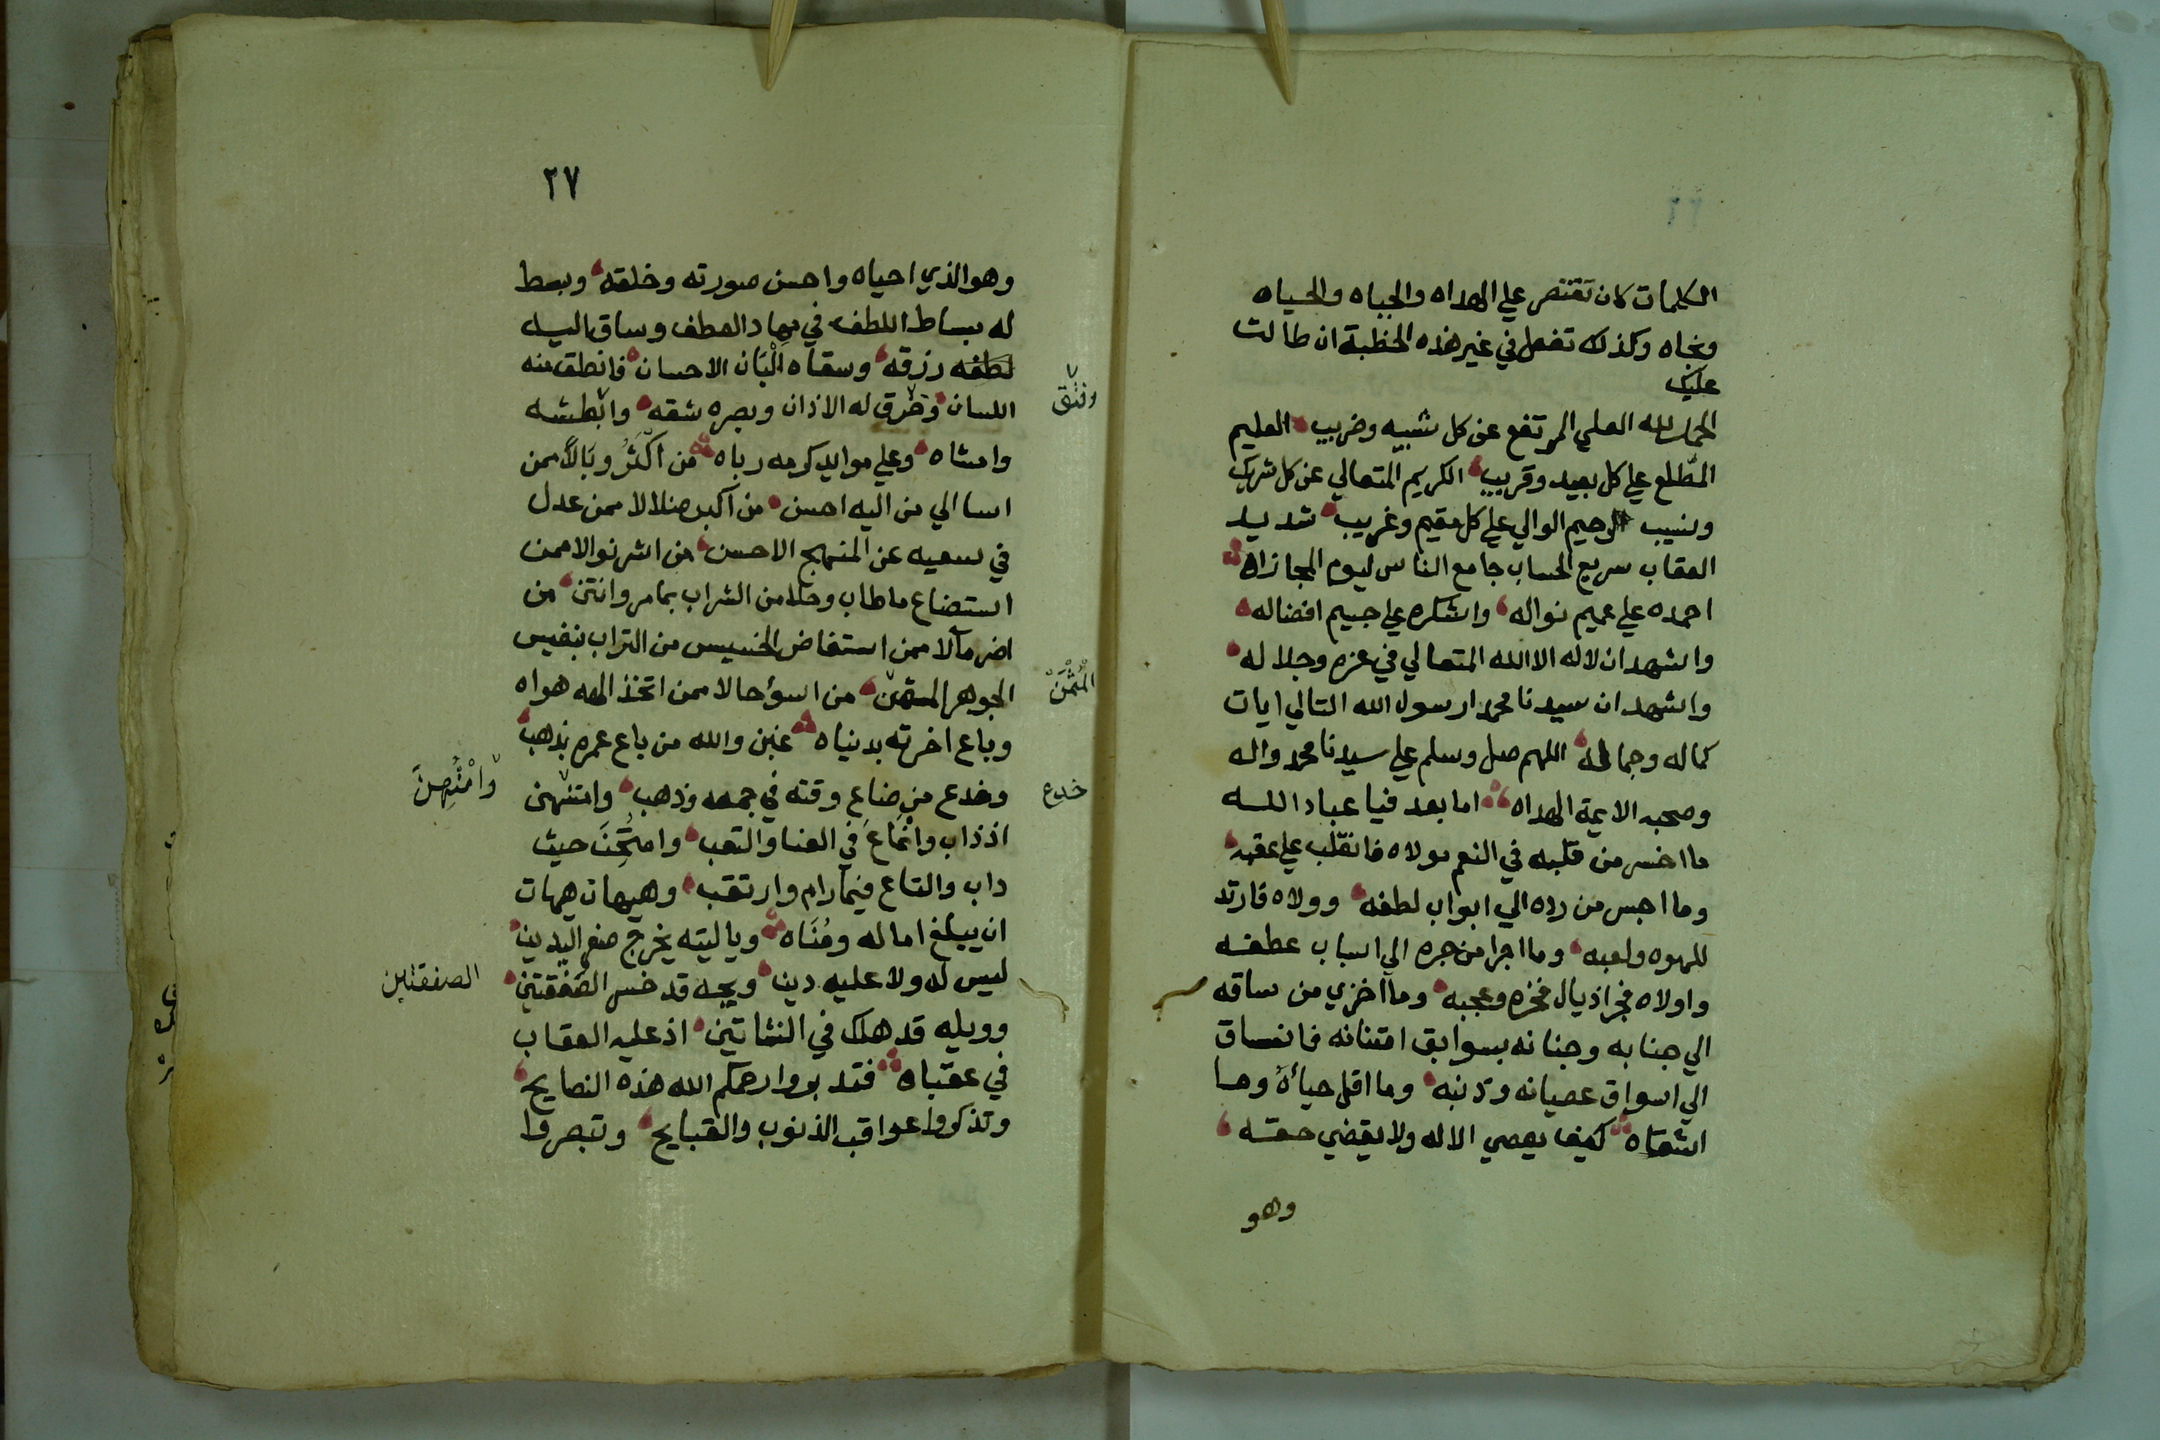 الكلمات كان تقتصر علي الهداه والجباه والحياه
ونجاه وكذلك تفعل في غير هذه الخطبة ان طالت
عليك
الحمد لله العلي المرتفع عن كل شبيه وضريب العليم
المطّلع علي كل بعيد وقريب الكريم المتعالي عن كل شريك
ونسيب الرحيم الوالي علي كل مقيم وغريب شديد
العقاب سريع الحساب جامع الناس ليوم المجازاه
احمده علي عميم نواله واشكره علي جسيم افضاله
واشهد ان لا اله الا الله المتعالي في عزه وجلاله
واشهد ان سيدنا محمدا رسول الله التالي ايات
كماله وجماله اللهم صل وسلم علي سيدنا محمد واله
وصحبه الايمة الهداه اما بعد فيا عباد الله
ما اخسر من قلبه في النعم مولاه فانقلب علي عقبه
وما اجسر من رده الي ابواب لطفه وولاه فارتد
للهوه ولعبه وما اجرا من جره الي اسباب عطفه
واولاه فجر اذيال فخره وعجبه وما اخزي من ساقه
الي جنابه وجنانه بسوابق امتنانه فانساق
الي اسواق عصيانه وذنبه وما اقل حياءه وما
اشقاه كيف يعصي الاله ولا يقضي حقه
وهو
٢٧
وهو الذي احياه واحسن صورته وخلقه وبسط
له بساط اللطف في مهاد العطف وساق اليه
لطفه رزقه وسقاه الْبَان الاحسان فانطلق منه
اللسان وخرق له الاذان وبصره شقه وابطشه
وفتق
وامشاه وعلي موايد كرمه رباه من اكْثَرُ وبَالاً ممن
اسا الي من اليه احسن من اكبر ضلالا ممن عدل
في سعيه عن المنهج الاحسن من اشر نوالا ممن
استضاع ما طاب وحلا من الشراب بما مر وانتن من
اضر مآلا ممن استعاض الخسيس من التراب بنفيس
الجوهر المثمن من اسوء حالا ممن اتخذ الهه هواه
الْمُثْمَنْ
وباع اخرته بدنياه غبن والله من باع عمره بذهب
وخدع من ضاع وقته في جمعه وذهب وامتهن
خدع
وَامْتُهِنَ
اذ ذاب وانْمَاعَ في العنا والتعب وامتُحِنَ حيث
داب والتاع فيما رام وارتقب وهيهات هيهات
ان يبلغ اماله ومُنَاه وياليته يخرج صفر اليدين
ليس له ولا عليه دين ويحه قد خسر الصَفْقتين
الصفقتين
وويله قد هلك في النشاتين اذ عليه العقاب
في عقباه فتدبروا رحمكم الله هذه النصايح
وتذكروا عواقب الذنوب والقبايح وتبصروا